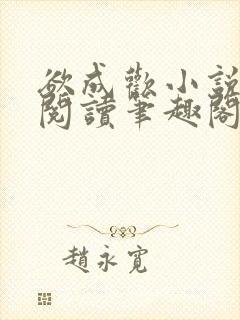 欲成歡小說
閱讀筆趣閣
趙永寬